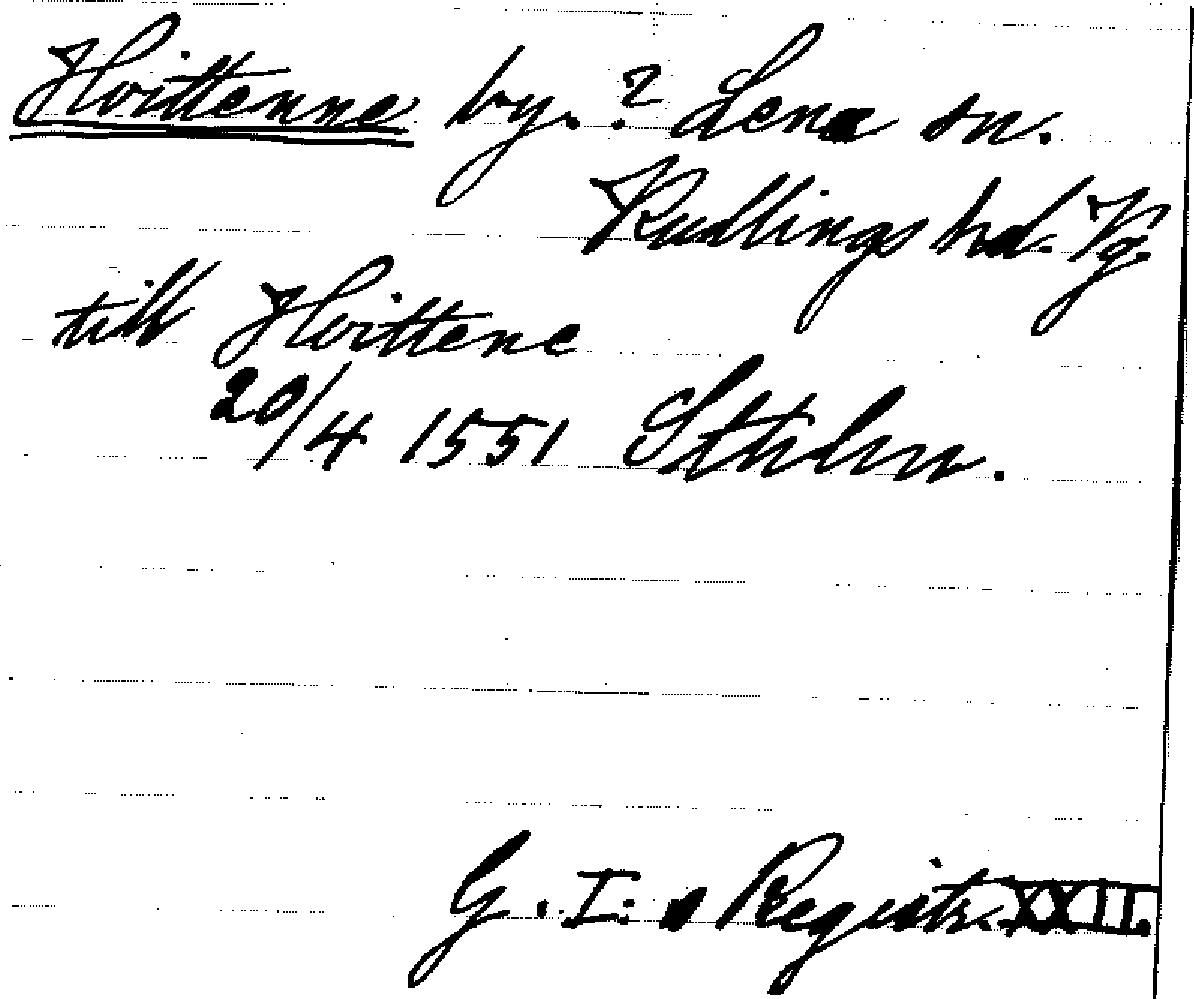 Hvittenne by. ? Lena sn.
Kullings hd. Vg.
till Hvittene
20/4 1551 Sthlm.
G. I:s Registr. XXII.